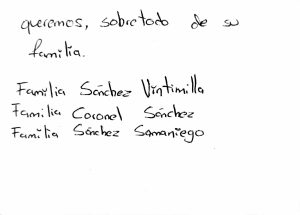 queremos, sobretodo de su
familia.
Familia Sánchez Vintimilla
Familia Coronel Sánchez
Familia Sánchez Samaniego